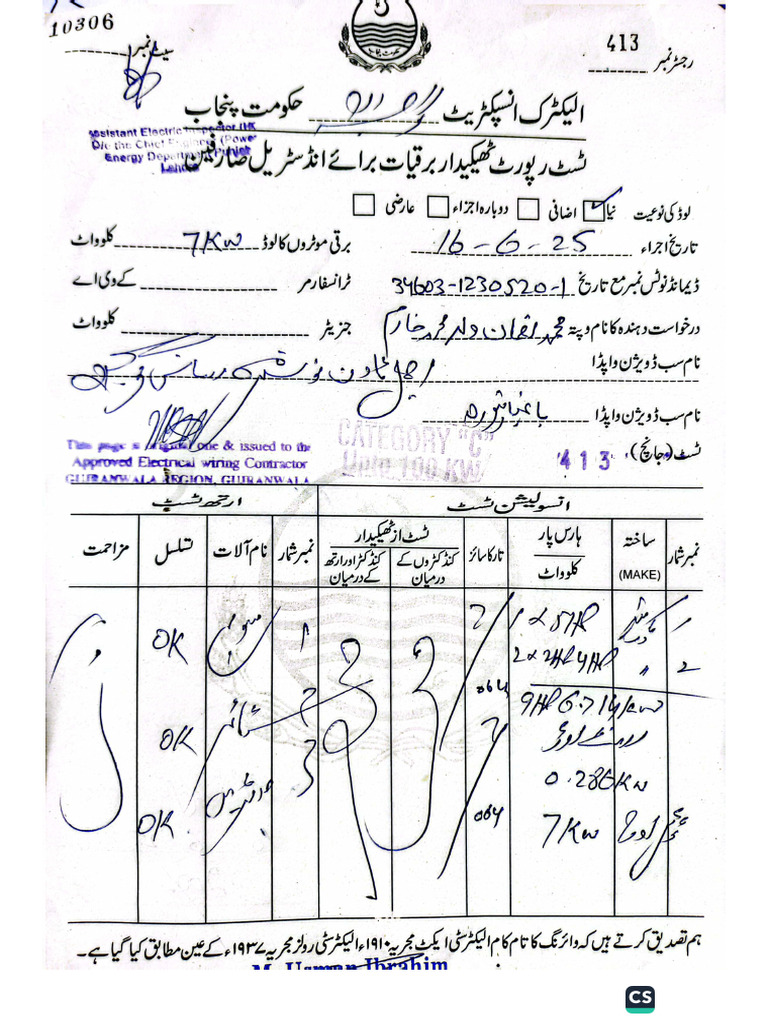 10306
سیٹ نمبر
413
رجسٹر نمبر
الیکٹرک انسپکٹریٹ حکومت پنجاب
Assistant Electric Inspector (HQ)
O/o the Chief Engineer (Power)
Energy Department Punjab
Lahore
ٹسٹ رپورٹ ٹھیکیدار برقیات برائے انڈسٹریل صارفین
لوڈ کی نوعیت نیا اضافی دوبارہ اجراء عارضی
تاریخ اجراء 16-6-25 برقی موٹروں کا لوڈ 7Kw کلو واٹ
ڈیمانڈ نوٹس نمبر مع تاریخ 34603-1230520-1 ٹرانسفارمر کے وی اے
درخواست دہندہ کا نام و پتہ محمد لقمان ولد محمد خارم جنریٹر کلو واٹ
نام سب ڈویژن واپڈا
نام سب ڈویژن واپڈا باغبانپورہ
This page is original one & issued to the
Approved Electrical wiring Contractor
GUJRANWALA REGION, GUJRANWALA
CATEGORY "C"
Upto 100 KW
413
ٹسٹ (جانچ)
انسولیشن ٹسٹ ارتھ ٹسٹ
نمبر شمار ساختہ (MAKE) ہارس پار کلو واٹ تار کا سائز ٹسٹ از ٹھیکیدار کنڈکٹروں کے درمیان کنڈکٹر اور ارتھ کے درمیان نمبر شمار نام آلات تسلسل مزاحمت
1 1x5HP 7/ 1 OK
2 " 2x2HP 4HP 064 2
9HP 6.714kw 7/ OK
0.286Kw 3
7Kw 064 OK
ہم تصدیق کرتے ہیں کہ وائرنگ کا تام کام الیکٹرسٹی ایکٹ مجریہ ۱۹۱۰ء الیکٹرسٹی رولز مجریہ ۱۹۳۷ء کے عین مطابق کیا گیا ہے۔
M. Usman Ibrahim
CS